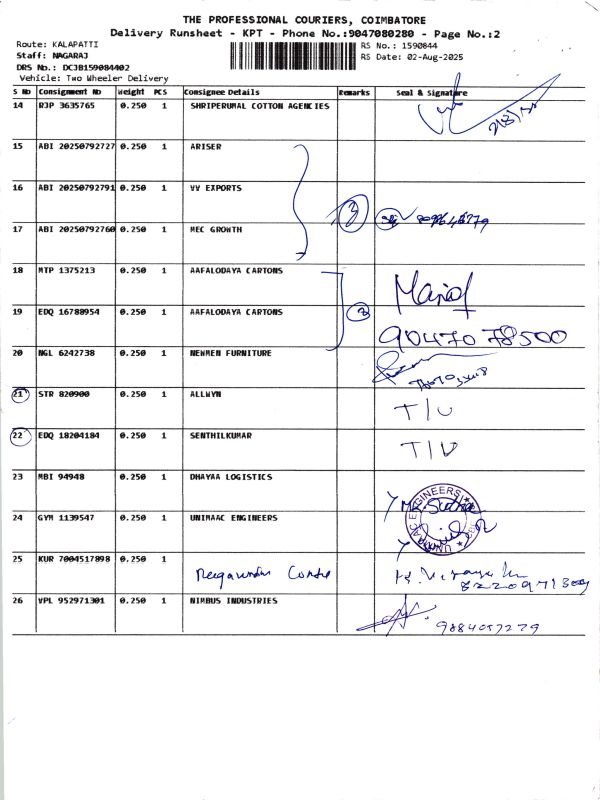 THE PROFESSIONAL COURIERS, COIMBATORE
Delivery Runsheet - KPT - Phone No.:9047080280 - Page No.:2
Route: KALAPATTI RS No.: 1590844
Staff: NAGARAJ RS Date: 02-Aug-2025
DRS No.: DCJB159084402
Vehicle: Two Wheeler Delivery
S No Consignment No Weight PCS Consignee Details Remarks Seal & Signature
14 RJP 3635765 0.250 1 SHRIPERUMAL COTTON AGENCIES
15 ABI 20250792727 0.250 1 ARISER
16 ABI 20250792791 0.250 1 VV EXPORTS
3
17 ABI 20250792760 0.250 1 MEC GROWTH
18 MTP 1375213 0.250 1 AAFALODAYA CARTONS
19 EDQ 16788954 0.250 1 AAFALODAYA CARTONS
90470 78500
20 NGL 6242738 0.250 1 NEWMEN FURNITURE
21 STR 820900 0.250 1 ALLWYN T/U
22 EDQ 18204184 0.250 1 SENTHILKUMAR T/U
23 MBI 94948 0.250 1 DHAYAA LOGISTICS
24 GYM 1139547 0.250 1 UNIMAAC ENGINEERS
25 KUR 7004517898 0.250 1
26 VPL 952971301 0.250 1 NIMBUS INDUSTRIES